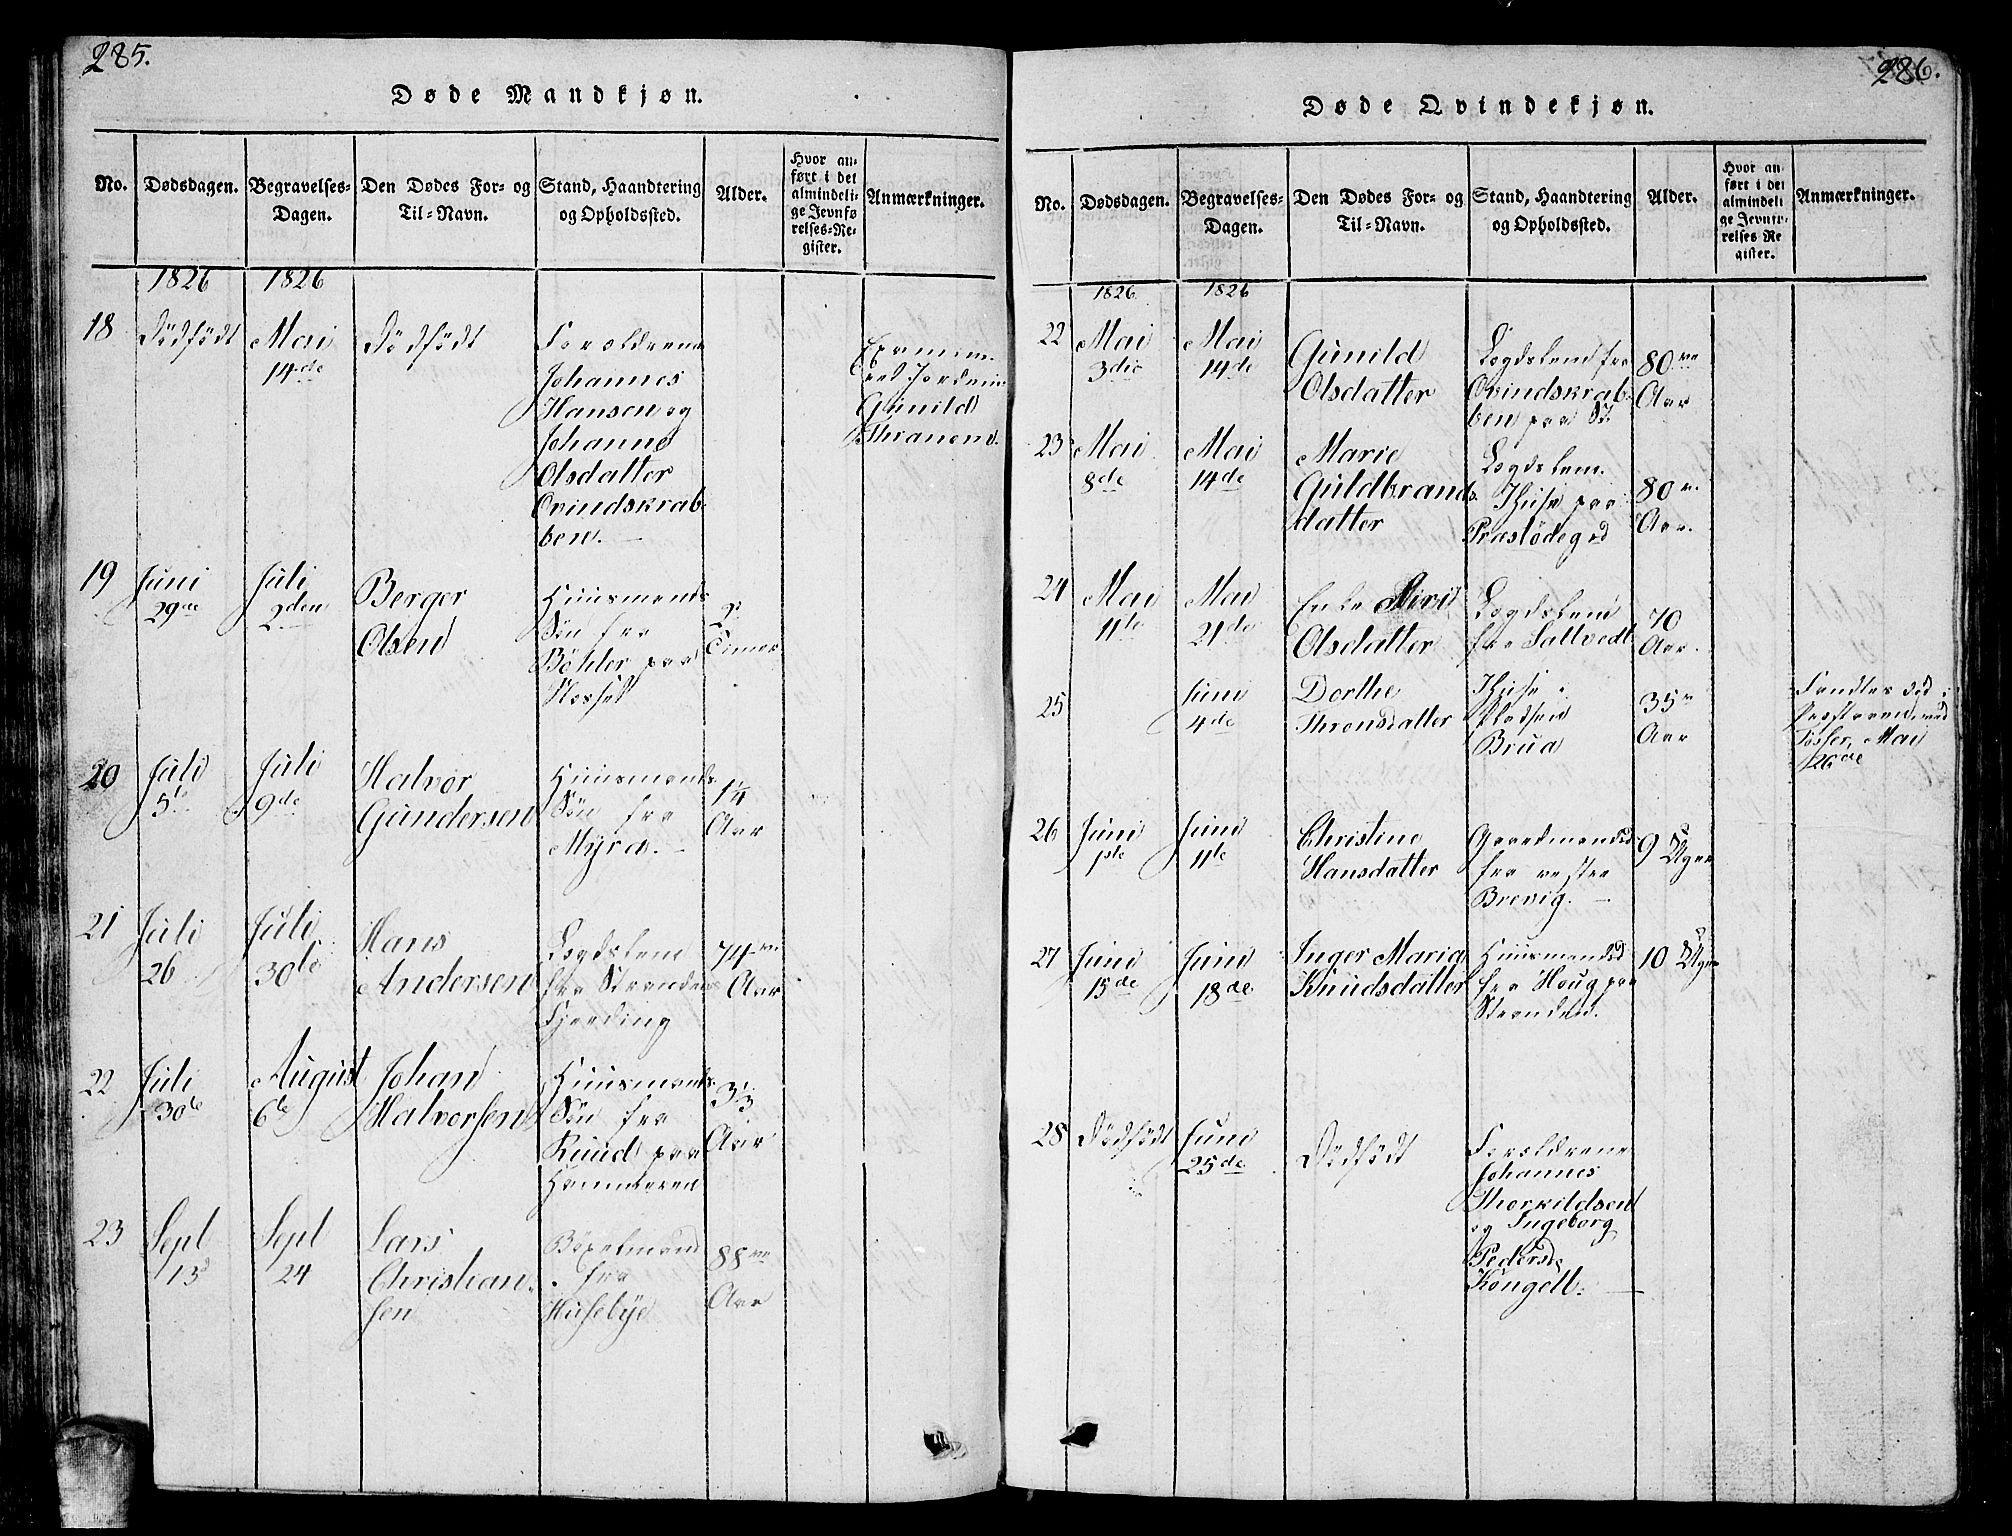 285.
Døde Mandkjøn.
No.
Dødsdagen.
Begravelses-
Dagen.
Den Dødes For- og
Til-Navn.
Stand, Haandtering
og Opholdssted.
Alder.
Hvor an-
ført i det
almindeli-
ge Jevnfø
relses-Re-
gister.
Anmærkninger.
1826 1826
18 Dødfødt
Mai
14de
Dødfødt
Forældrene
Johannes
Hansen og
Johanne
Olsdatter
Qvindskrab-
ben.
Gunild
19 Juni
29de
Juli
2den
Berger
Olsen
Huusmands
Søn fra
Bøhler paa
2
Timer
20 Juli
5te
Juli
9de
Halvor
Gundersen
Huusmands
Søn fra
Myra.
1¼
Aar
21 Juli
26
Juli
30te
Hans
Andersen
Lægdslem
fra Stranden
Fjerding
74
Aar
22 Juli
30te
August
6te
Johan
Halvorsen
Huusmands
Søn fra
Ruud paa
Hammeren
3⅓
Aar
23 Sept
13
Sept
24
Lars
Christian-
sen
fra
Husebye
88
Aar
286.
Døde Qvindekjøn.
No.
Dødsdagen.
Begravelses-
Dagen.
Den Dødes For- og
Til-Navn.
Stand, Haandtering
og Opholdssted.
Alder.
Hvor an-
ført i det
almindeli
ge Jevnfø-
relses Re
gister.
Anmærkninger.
1826 1826
22 Mai
3die
Mai
14de
Gunild
Olsdatter
Lægdslem fra
Qvindskrab-
ben paa
80
Aar
23 Mai
8de
Mai
14de
Marie
Guldbrands-
datter
Lægdslem
paa
80
Aar.
24 Mai
11te
Mai
21de
Enke Siri
Olsdatter
Lægdslem
fra Saltvedt
70
Aar.
25
Juni
4de
Dorthe
Thronsdatter
Pladsen
Brua
35
Aar
Fandtes død i
Mai
26de
26 Juni
1ste
Juni
11te
Christine
Hansdatter
Gaardmandsd
fra vestre
Brevig.
9 Uger
27 Juni
15de
Juni
18de
Inger Maria
Knudsdatter
Huusmandsd
fra Houg paa
Stranden.
10 Uger
28 Dødfødt
Juni
25de
Dødfødt
Forældrene
Johannes
Thorkildsen
og Ingeborg
Pedersd
Kongell.